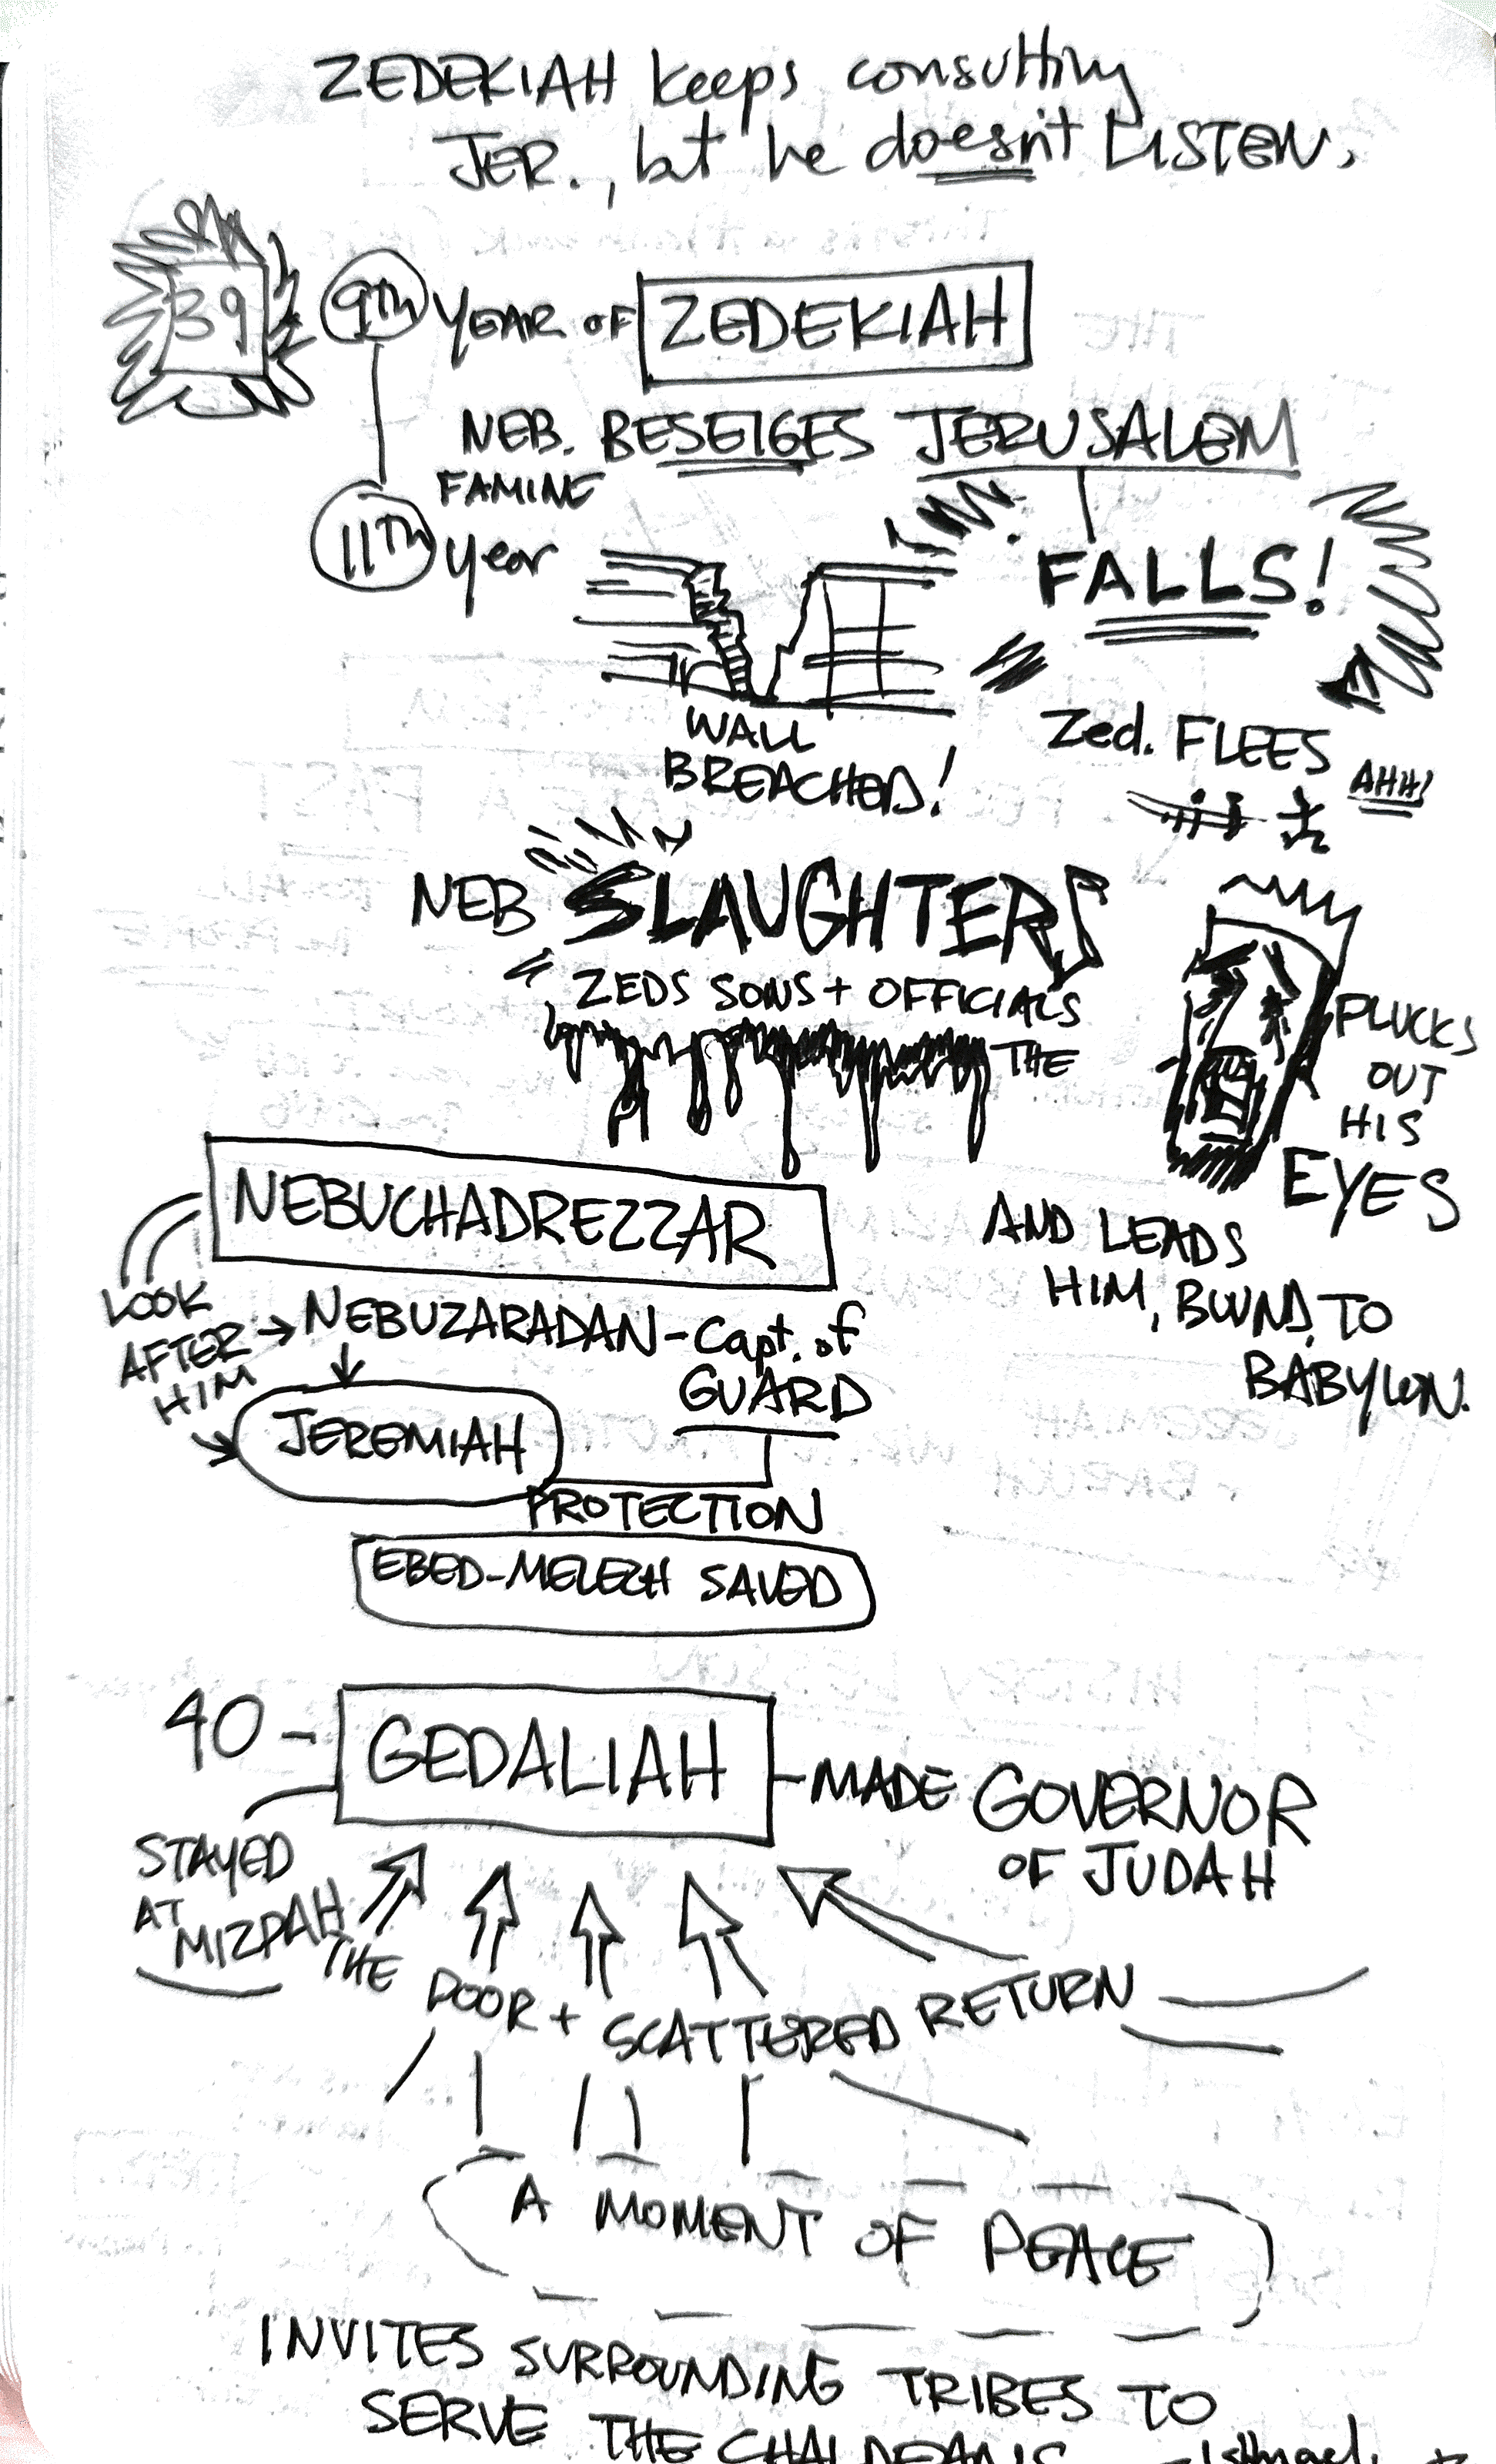 ZEDEKIAH keeps consulting
JER., but he doesn't LISTEN.
39
9Th YEAR OF ZEDEKIAH
NEB. BESEIGES JERUSALEM
FAMINE
11Th year
FALLS!
WALL
BREACHED!
Zed. FLEES
AHH!
NEB SLAUGHTERS
ZEDS SONS + OFFICIALS
THE
PLUCKS
OUT
HIS
EYES
AND LEADS
HIM, BOUND, TO
BABYLON.
NEBUCHADREZZAR
LOOK
AFTER
HIM
→ NEBUZARADAN - Capt. of
GUARD
JEREMIAH
PROTECTION
EBED-MELECH SAVED
40 - GEDALIAH - MADE GOVERNOR
OF JUDAH
STAYED
AT
MIZPAH
THE POOR + SCATTERED RETURN
A MOMENT OF PEACE
INVITES SURROUNDING TRIBES TO
SERVE THE CHALDEANS